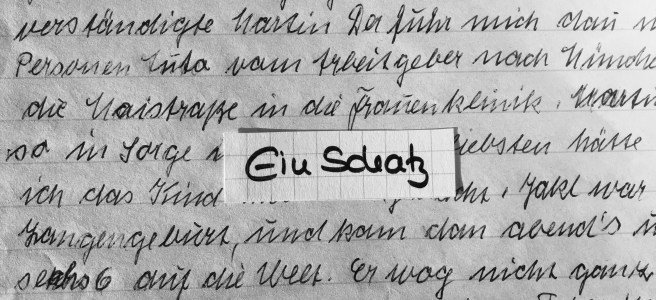 verständigte Martin Der fuhr mich dan
Personen Auto vom Arbeitgeber nach Münche
die Maistraße in die Frauenklinik. Marti
so in Sorge
Ein Schatz
liebsten hätte
ich das Kind
cht, Jakl war
Zangengeburt, und kam dan abend's u
sechs 6 auf die Welt. Er wog nicht ganz